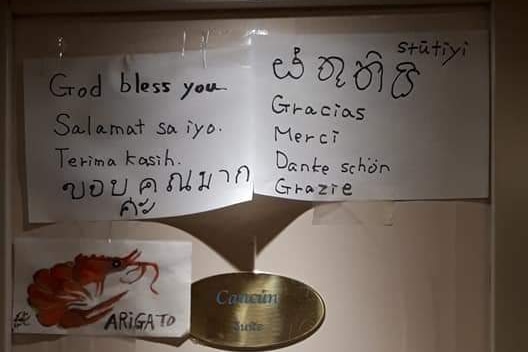 God bless you
Salamat sa iyo.
Terima kasih.
ขอบคุณมาก
ค่ะ
stūtiyi
ස්තූතියි
Gracias
Merci
Danke schön
Grazie
ARIGATO
Cancún
Suite